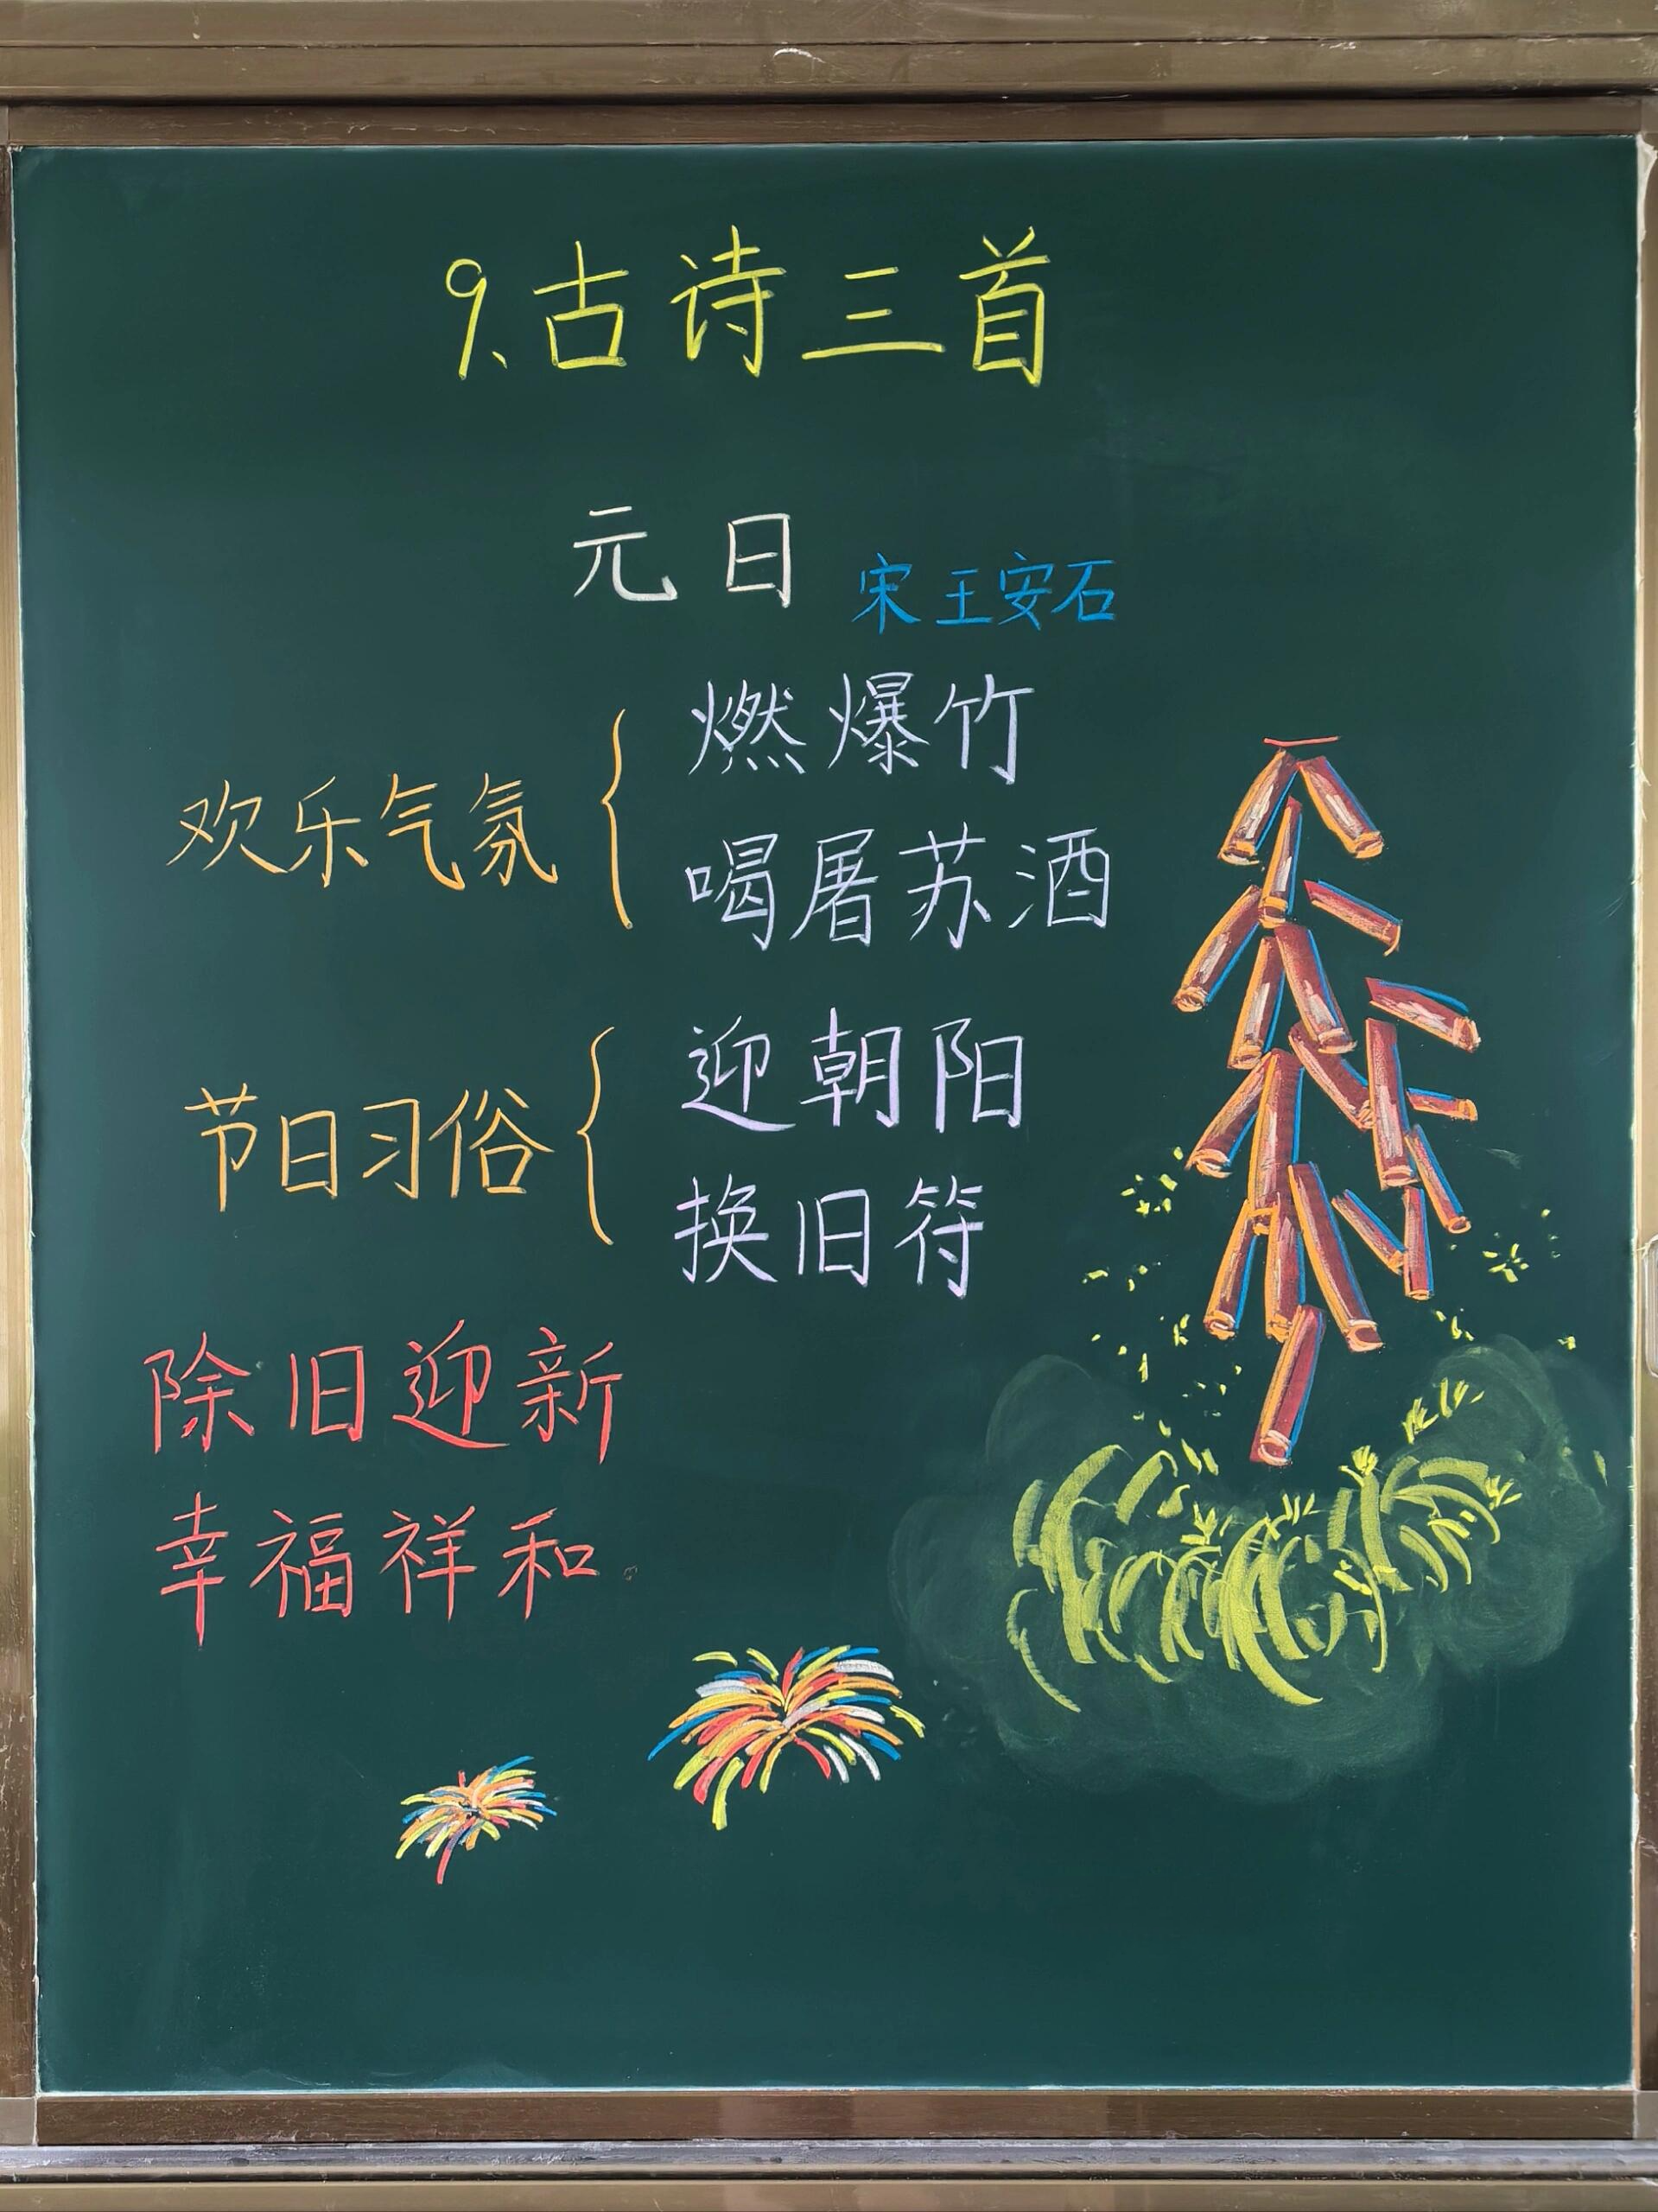 9、古诗三首
元日 宋 王安石
欢乐气氛
燃爆竹
喝屠苏酒
节日习俗
迎朝阳
换旧符
除旧迎新
幸福祥和